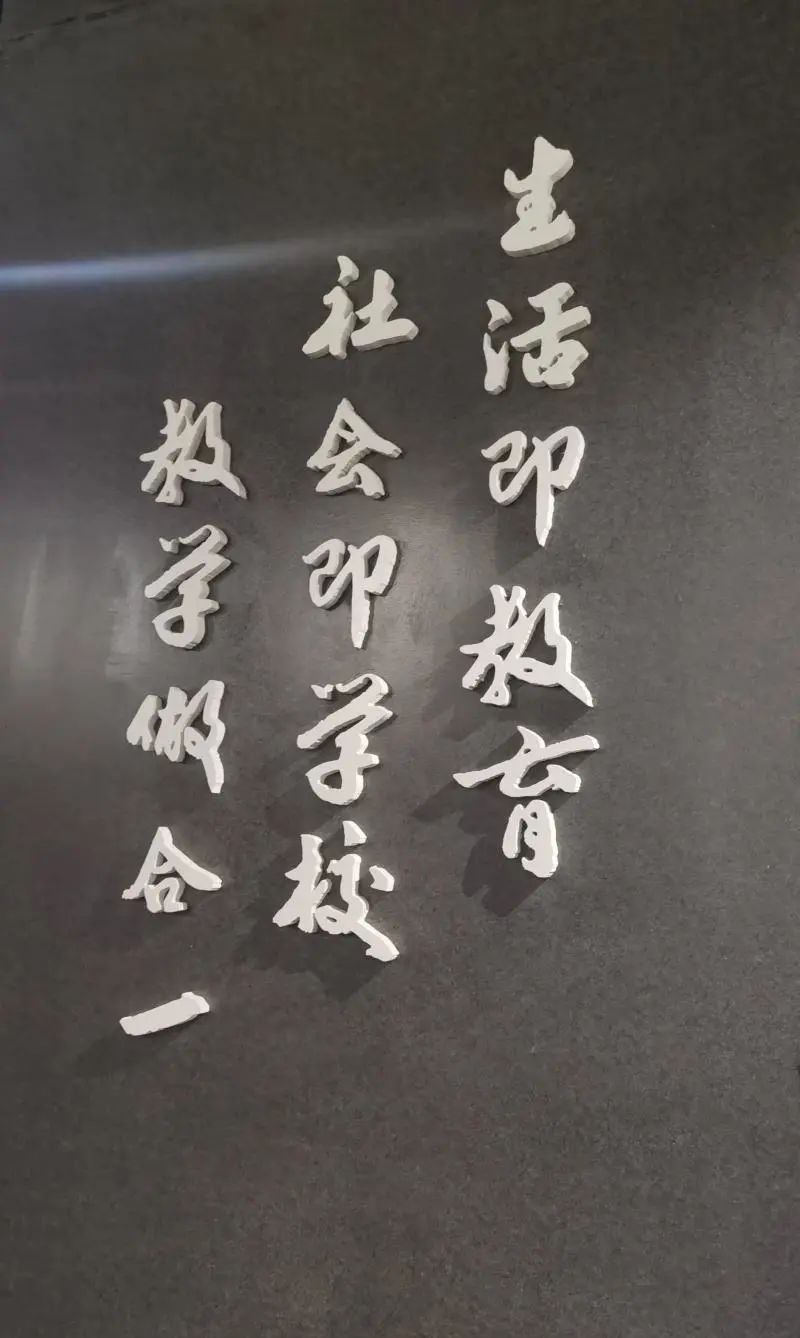 生活即教育
社会即学校
教学做合一